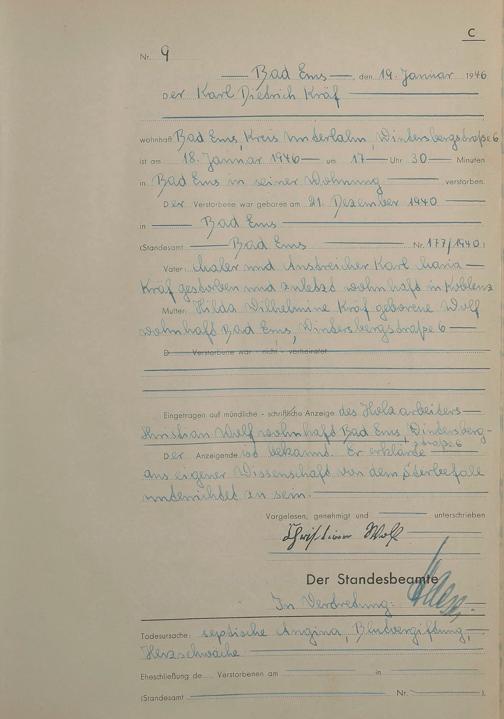 C
Nr. 9
Bad Ems, den 19. Januar 1946
Der Karl Dietrich Kräf
wohnhaft Bad Ems, Kreis Unterlahn, Wintersbergstraße 6
ist am 18. Januar 1946 um 17 Uhr 30 Minuten
in Bad Ems in seiner Wohnung verstorben.
Der Verstorbene war geboren am 21. Dezember 1940
in Bad Ems
(Standesamt Bad Ems Nr. 177/1940)
Vater: Maler und Anstreicher Karl Maria
Kräf gestorben und zuletzt wohnhaft in Koblenz
Mutter: Hilda Wilhelmine Kräf geborene Wolf
wohnhaft Bad Ems, Wintersbergstraße 6
D Verstorbene war – nicht – verheiratet
Eingetragen auf mündliche – schriftliche Anzeige des Holzarbeiters
Christian Wolf wohnhaft Bad Ems, Wintersberg-
straße 6
Der Anzeigende ist bekannt. Er erklärte
aus eigener Wissenschaft von dem Sterbefalle
unterrichtet zu sein.
Vorgelesen, genehmigt und unterschrieben
Christian Wolf
Der Standesbeamte
In Vertretung:
Todesursache: septische Angina, Blutvergiftung,
Herzschwäche
Eheschließung de Verstorbenen am in
(Standesamt Nr. ).